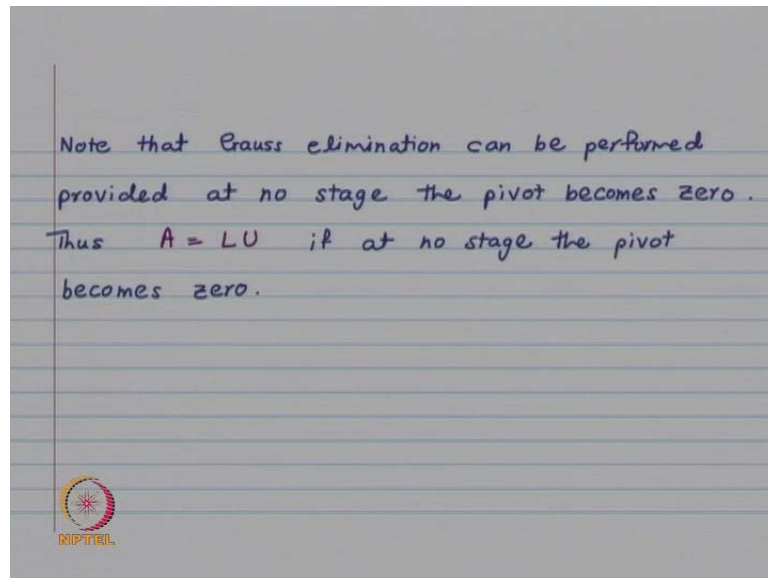 Note that Gauss elimination can be performed
provided at no stage the pivot becomes zero.
Thus A = LU if at no stage the pivot
becomes zero.
NPTEL